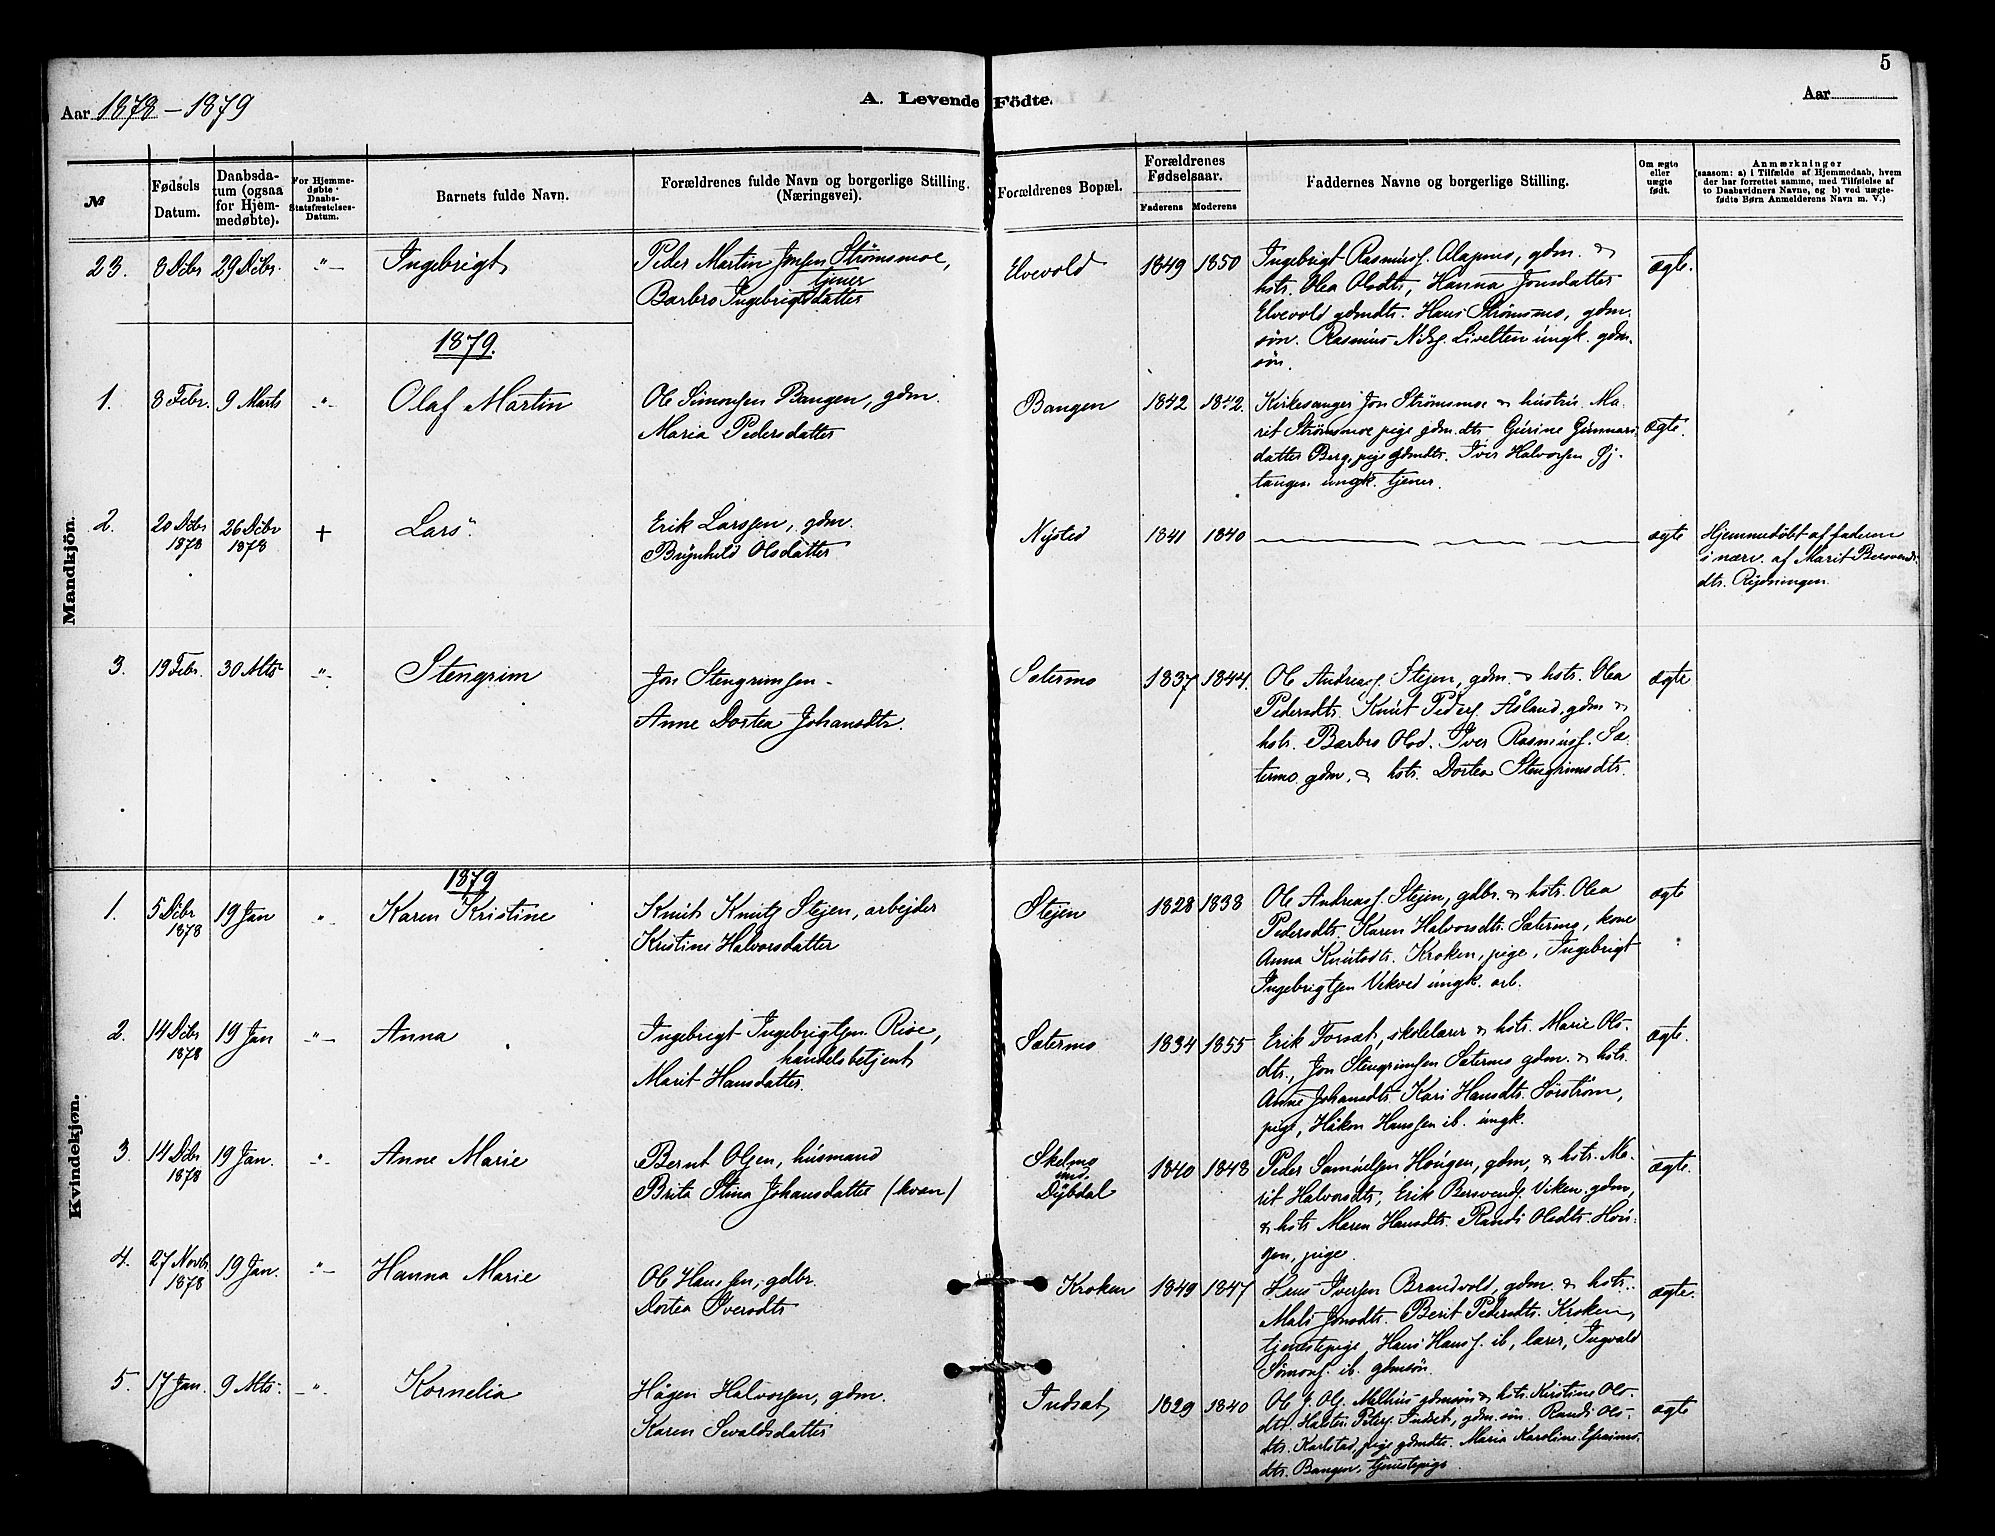 5
Aar 1878 – 1879
A. Levende Födte.
Aar
№
Fødsels Datum.
Daabsdatum (ogsaa for Hjemmedøbte).
For Hjemmedøbte Daabs-Statsfæstelses-Datum.
Barnets fulde Navn.
Forældrenes fulde Navn og borgerlige Stilling. (Næringsvei).
Forældrenes Bopæl.
Forældrenes Fødselsaar.
Faderens Moderens
Faddernes Navne og borgerlige Stilling.
Om ægte eller uægte født.
Anmærkninger
(saasom: a) i Tilfælde af Hjemmedaab, hvem
der har forrettet samme, med Tilføielse af
to Daabsvidners Navne, eg b) ved uægte-
fødte Børn Anmelderens Navn m. V.)
Mandkjön.
23. 8 Dcbr 29 Dcbr. -"- Ingebrigt
Peder Martin Jonsen Strömsmoe,
tjener
Barbro Ingebrigtsdatter
Elvevold 1849 1850
Ingebrigt Rasmuss. Alapmo, gdm. &
hstr. Olea Olsdtr, Hanna Jonsdatter
Elvevold gdmdtr. Hans Strömsmo, gdm.
sön. Rasmus Nils. Livelten ungk. gdm.
sön.
ægte.
1879.
1. 8 Febr. 9 Marts -"- Olaf Martin
Ole Simonsen Bangen, gdm.
Maria Pedersdatter
Bangen 1842 1842.
Kirkesanger Jon Strömsmoe & hustru. Ma-
rit Strömsmoe pige gdm.dtr. Gurine Gunnars-
datter Berg, pige gdmdtr. Iver Halvorsen Øj-
tangen ungk. tjener.
ægte.
2. 20 Dcbr 1878 26 Dcbr 1878 + Lars
Erik Larssen, gdm.
Brynhild Olsdatter
Nysted 1841 1840
ægte
Hjemmedöbt af faderen
i nærv. af Marit Bersvend-
dtr. Rydningen.
3. 19 Febr. 30 Mts -"- Stengrim
Jon Stengrimsen -
Anne Dortea Johansdtr.
Sætermo 1837 1844.
Ole Andreass. Stejen, gdm. & hstr. Olea
Pedersdtr. Knut Peders. Åsland, gdm &
hstr. Barbro Olsd. Iver Rasmuss. Sæ-
termo. gdm, & hstr. Dortea Stengrimsdtr.
ægte
Kvindekjøn.
1879
1. 5 Dcbr 1878 19 Jan " Karen Kristine
Knut Knuts. Stejen, arbejder
Kristine Halvorsdatter
Stejen 1828 1838
Ole Andreass. Stejen, gdbr. & hstr. Olea
Pedersdtr. Karen Halvorsdtr. Sætermo, kone
Anna Knutsdtr. Kroken, pige, Ingebrigt
Ingebrigtsen Vekved ungk. arb.
ægte
2. 14 Dcbr 1878 19 Jan -"- Anna
Ingebrigt Ingebrigtsen Rise,
handelsbetjent
Marit Hansdatter.
Sætermo 1834 1855
Erik Forsæt, skolelærer & hstr. Marie Ols-
dtr., Jon Stengrimsen Sætermo gdm. & hstr.
Anne Johansdtr. Kari Hansdtr. Sörström,
pige, Håkon Hanssen ib. ungk.
ægte.
3. 14 Dcbr 1878 19 Jan. " Anne Marie
Bernt Olsen, husmand
Brita Stina Johansdatter (kvæn)
Skelmo
und.
Dybdal
1840 1848
Peder Samuelsen Hougen, gdm, & hstr. Ma-
rit Halvorsdtr, Erik Bersvends. Viken, gdm,
& hstr. Maren Hansdtr. Randi Olsdtr. Hou-
gen, pige.
ægte.
4. 27 Novb. 1878 19 Jan. -"- Hanna Marie
Ole Hanssen, gdbr.
Dortea Iversdtr
Kroken 1849 1847
Hans Iversen Brandvold, gdm. & hstr.
Mali Jonsdtr. Berit Pedersdtr. Kroken,
tjenestepige, Hans Hanss. ib, lærer, Ingvald
Simons. ib. gdmsön.
ægte.
5. 17 Jan. 9 Mts. -"- Kornelia
Hågen Halvorsen, gdm.
Karen Sevaldsdatter
Indsæt 1829 1840
Ole J. Ols. Melhus gdmsön & hstr. Kirstine Ols-
dtr. Halsten Peters. Indset, gdm. sön. Randi Ols-
dtr. Karlstad, pige gdmdtr. Maria Karoline Efraims-
dtr. Bangen, tjenestepige
ægte